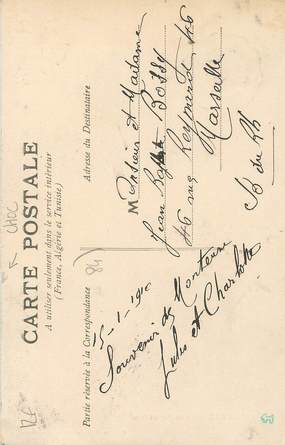 CARTE POSTALE
A utiliser seulement dans le service intérieur
(France, Algérie et Tunisie)
Partie réservée à la Correspondance
Adresse du Destinataire
5-1-1910
Souvenir de
Jules et Charlotte
Monsieur et Madame
Jean Bossy
46 rue 46
Marseille
B du Rh
CHOC
84